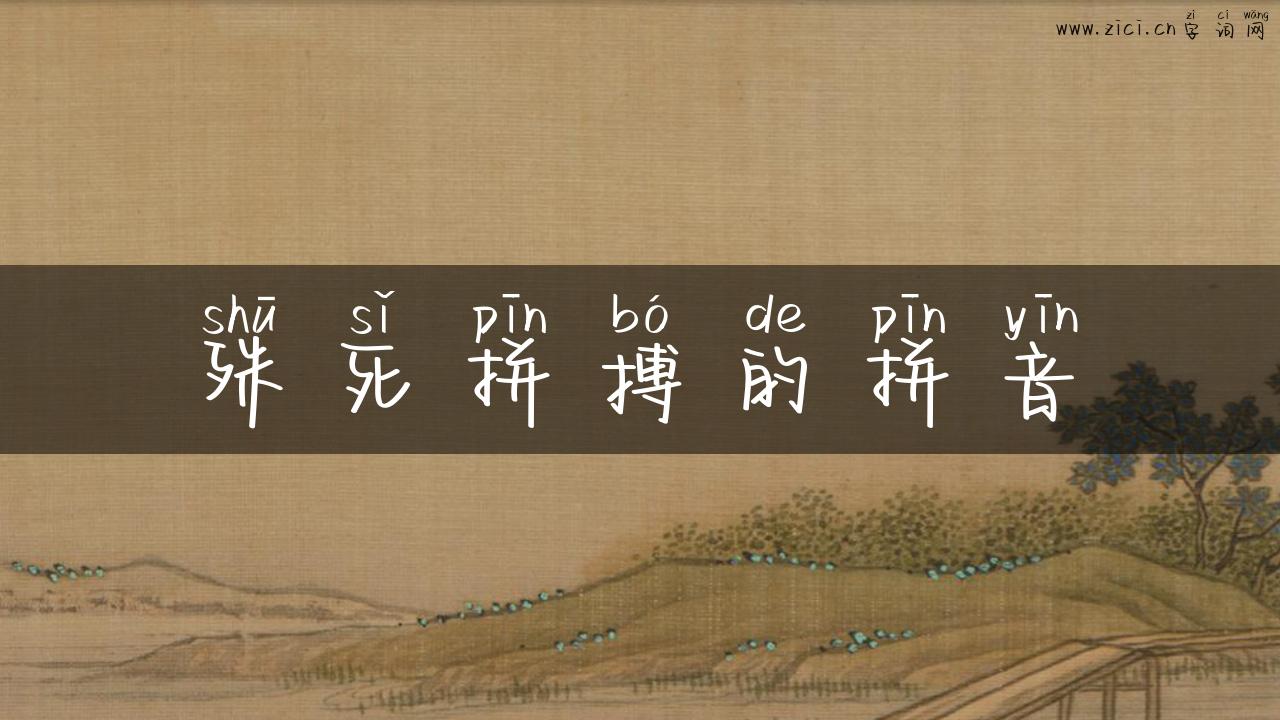 zì cí wǎng
www.zici.cn字词网
shū sǐ pīn bó de pīn yīn
殊死拼搏的拼音